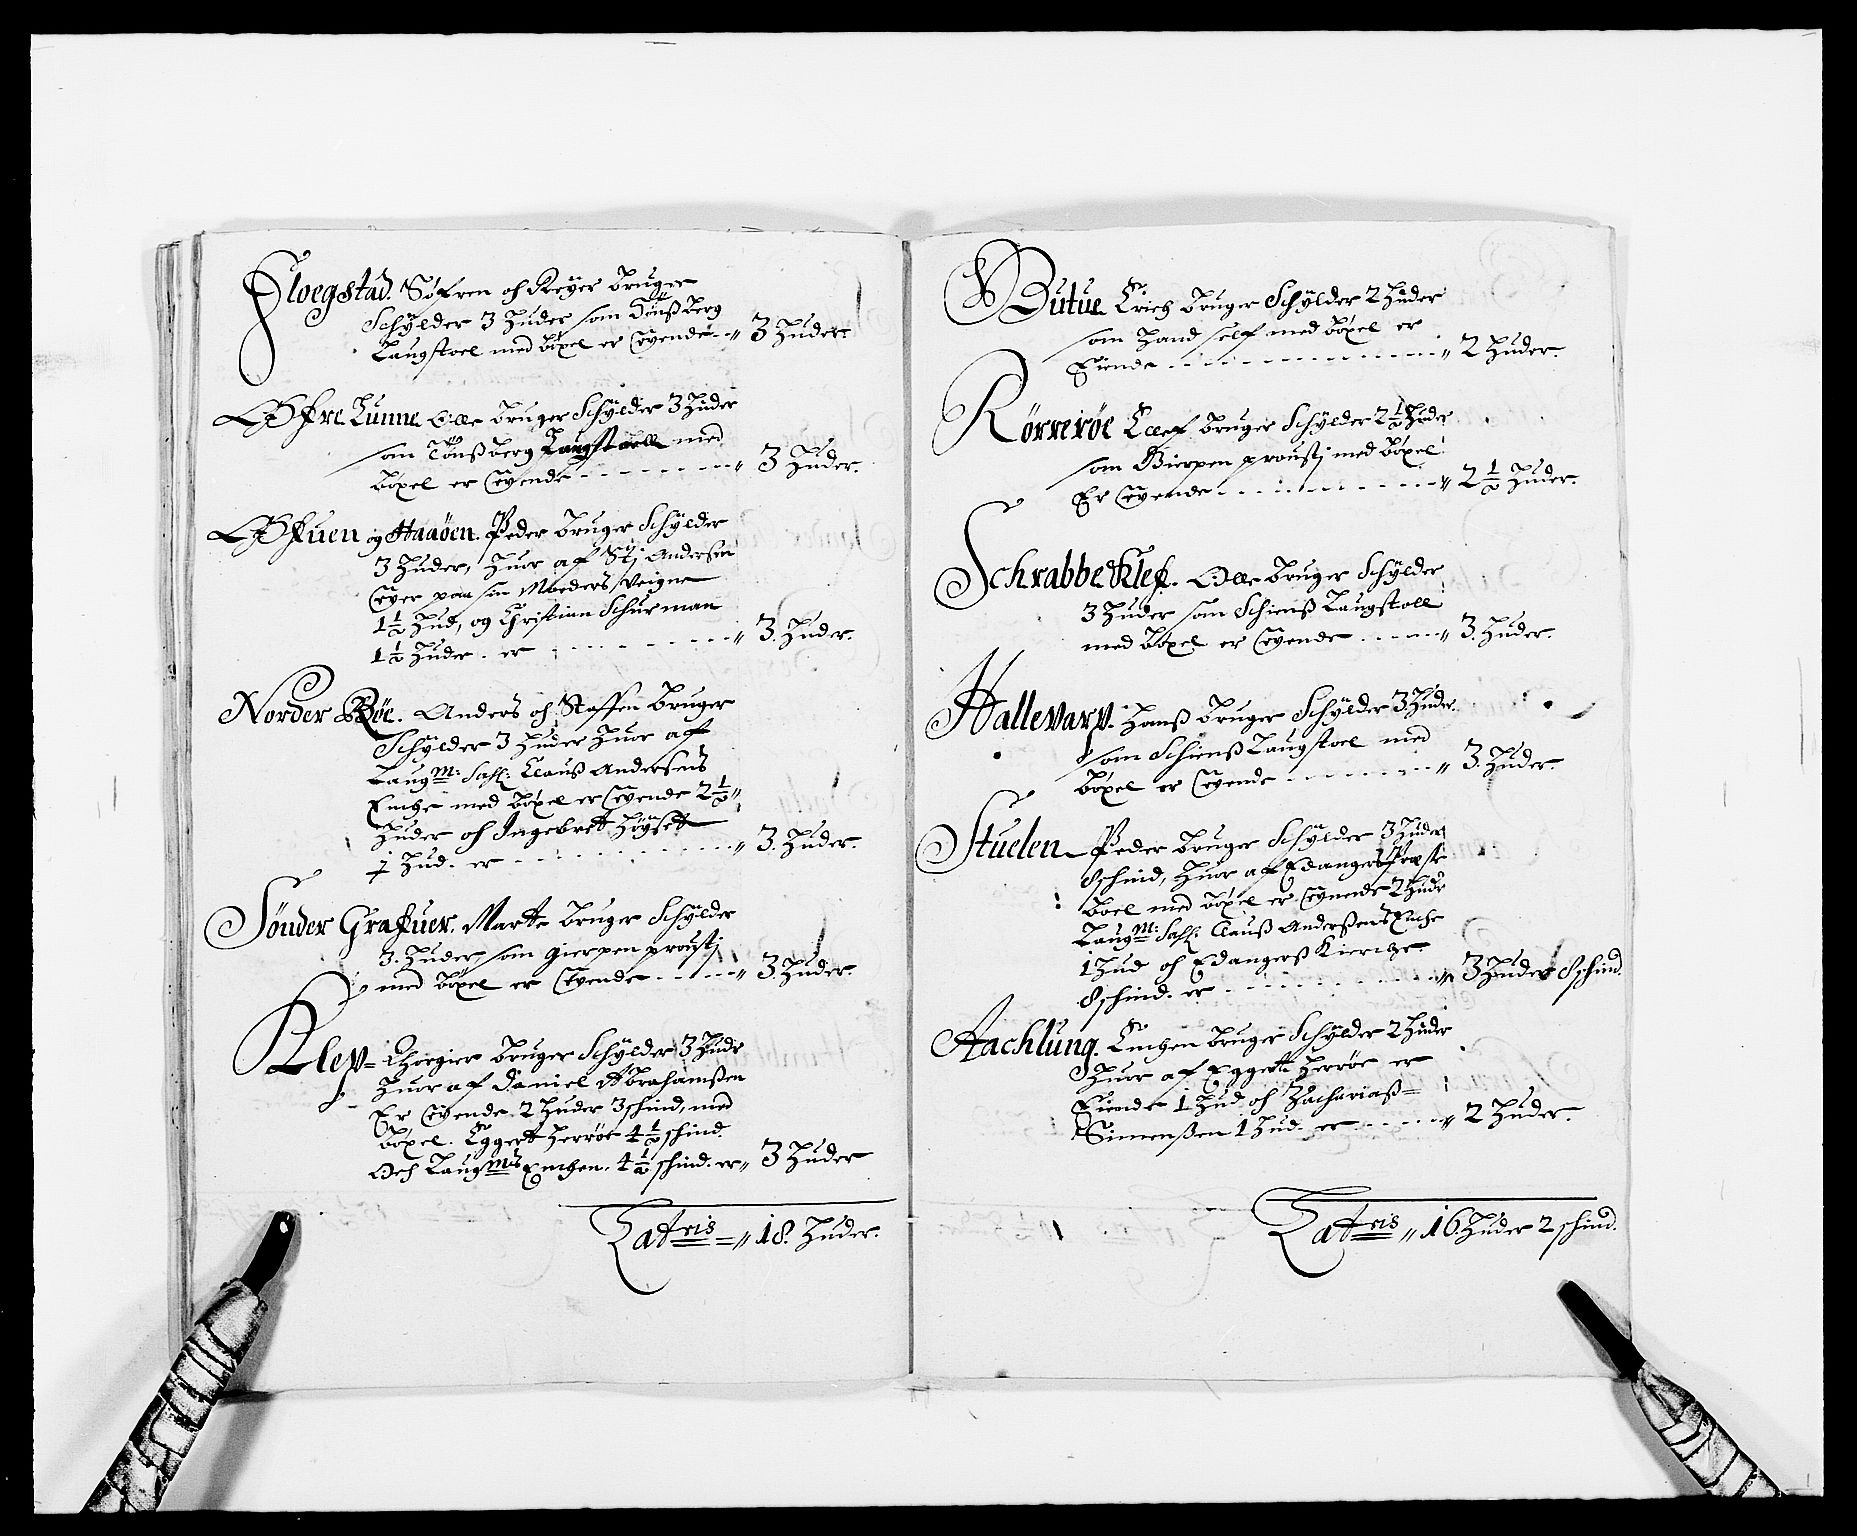 Floegstad. Søfren och Reÿer bruger
Schÿlder 3 huder som Tönßberg
Laugstoel med böxel er Eÿende - „ 3 huder.
Øfre Lunne Olle bruger Schÿlder 3 huder
som Tönßberg Laugstoell med
böxel er Eÿende - - - „ 3 huder.
Øfuen og Haaöen. Peder bruger Schÿlder
3 huder, huor af Andersen
Eÿer paa sin Moders Veigne
1 1/2 hud, og Christian Schurman
1 1/2 huder. er - - - „ 3. huder.
Norder Röe. Anders och Staffen bruger
Schÿlder 3 huder huor aff
Laugm: Sahl: Clauß Andersens
Enche med böxel er Eÿende 2 1/2 „
huder och Ingebret Höÿset
1/2 hud. er - - - „ 3. huder.
Sönder Grafuer. Marte bruger Schÿlder
3. huder, som Gierpen proustj
med böxel er Eÿende - - - „ 3 huder.
Klep = Thorgier bruger Schÿlder 3 hudr
huor af Daniel Abrahamßen
Er Eÿende 2 huder 3 schind, med
böxel. Eggert Herröe 4 1/2 schind.
Och Laugms Enchen. 4 1/2 schind. er „ 3 huder
Latris = „ 18. huder.
Butue Erich bruger Schÿlder 2 huder
som hand self med böxel er
Eiende - - - „ 2 huder.
Rörreröe Leef bruger Schÿlder 2 1/2 huder
som Gierpen proustj med böxel
Er Eÿende - - - „ 2 1/2 huder.
Schrabbe Klef. Olle bruger Schÿlder
3 huder som Schienß Laugstoell
med böxel er Eÿende - - - „ 3. huder.
Hallevarp. Hanß bruger Schÿlder 3 huder.
som Schienß Laugstoel med
böxel er Eÿende - - - „ 3. huder.
Stuelen Peder bruger Schÿlder 3 huder
8 schind, huor af Edangers Præste
boel med böxel er Eÿende 2 hudr
Laugm: Sahl: Clauß Anderßens Enche
1 hud och Edangerß Kierche
8 schind. er - - - „ 3 huder 8 schind.
Aachlung. Enchen bruger Schÿlder 2 huder
huor af Eggert Herröe er
Eiende 1 hud och Zachariaß =
Simenßen 1 hud. er - - - „ 2 huder.
Latris „ 16 huder 2 schind.